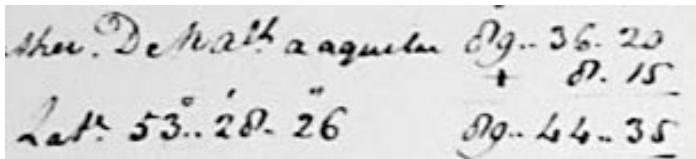 ther. De Nalt a aquela 89.. 36. 20
+ 8. 15
Latd. 53.. 28. 26 89.. 44.. 35